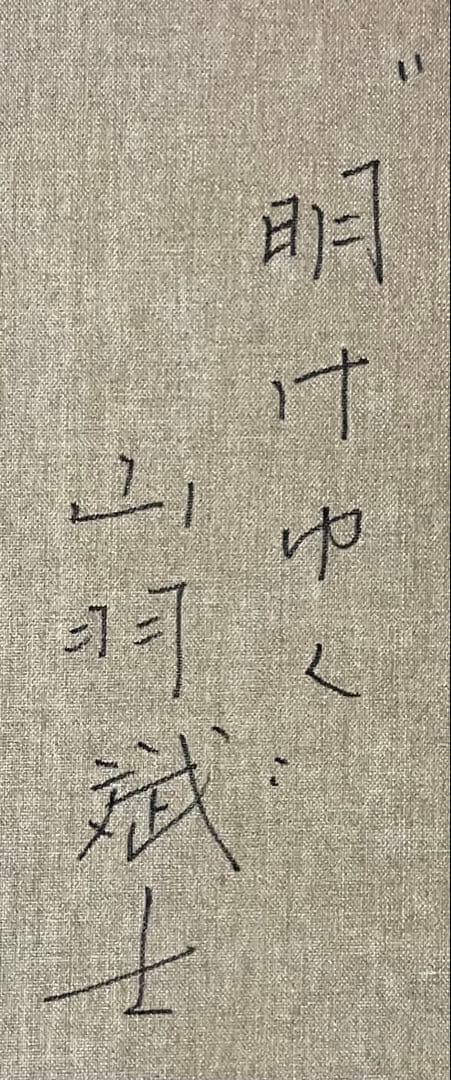 〃明けゆく〃
山羽斌士